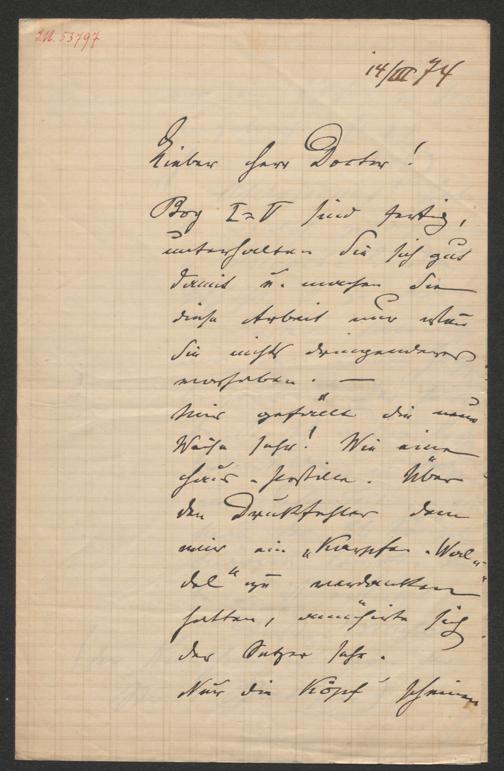 IN. 53797
14/III 74
Lieber Herr Doctor!
Bog I–V sind fertig,
unterhalten Sie sich gut
damit u. machen Sie
diese Arbeit nur wenn
Sie nichts dringenderes
vorhaben. —
Mir gefällt die neue
Weise sehr! Wie eine
Haus-Postille. Über
den Druckfehler dem
wir ein „Karpfen-Wal-
del“ zu verdanken
hatten, amüsirte sich
der Setzer sehr.
Nur die Köpf scheinen